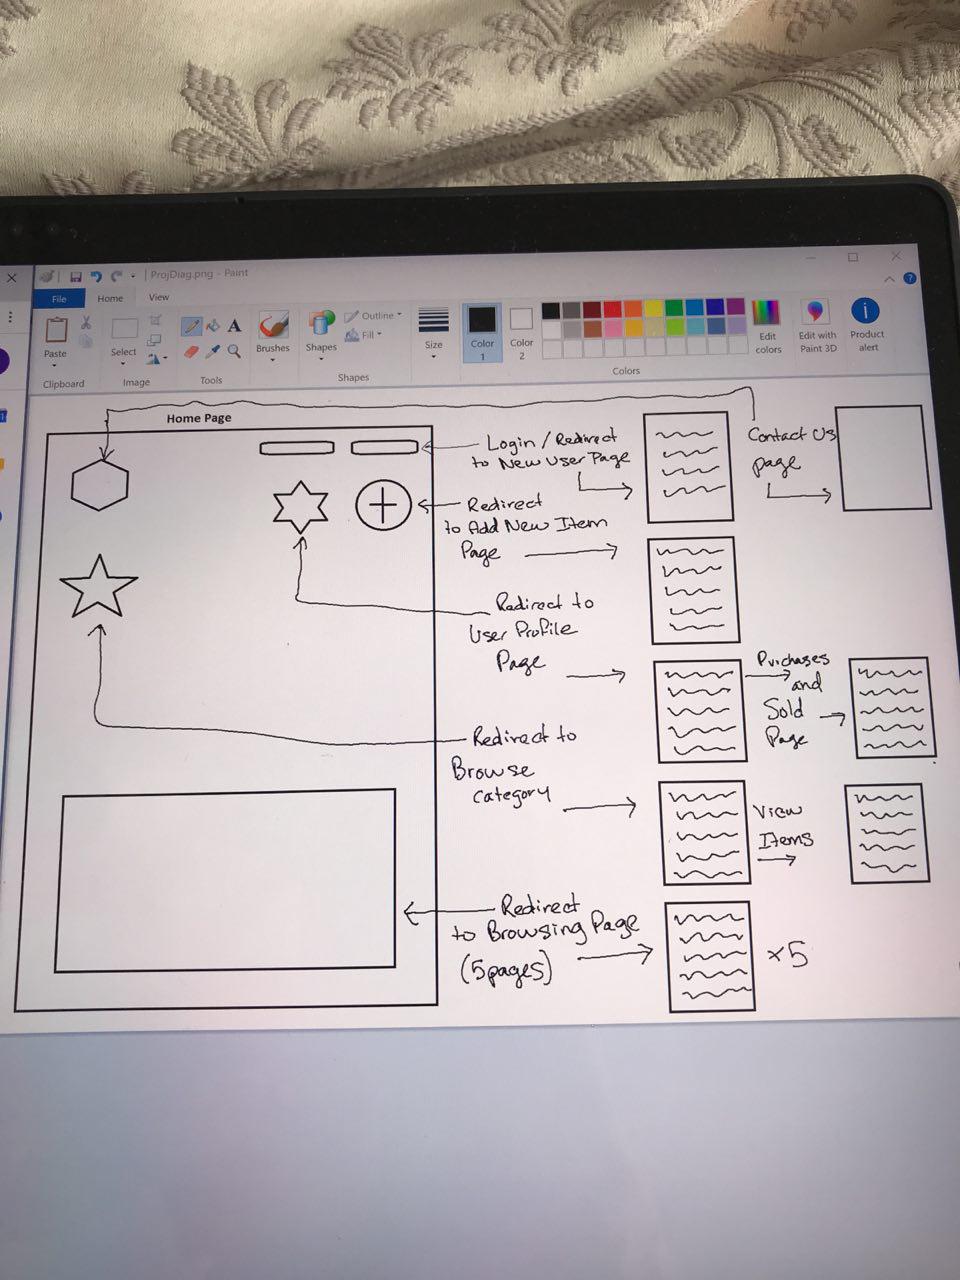 ProjDiag.png - Paint
File
Home
View
Paste
Clipboard
Select
Image
A
Tools
Brushes
Shapes
Outline
Fill
Shapes
Size
Color
1
Color
2
Colors
Edit
colors
Edit with
Paint 3D
Product
alert
Home Page
Login / Redirect
to New User Page
Contact Us
page
Redirect
to Add New Item
Page
Redirect to
User Profile
Page
Purchases
and
Sold
Page
Redirect to
Browse
category
View
Items
Redirect
to Browsing Page
(5 pages)
x5